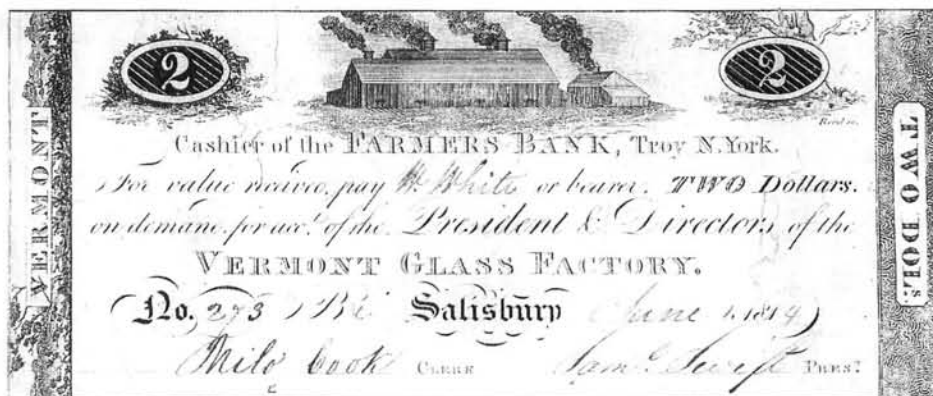 2 2
Reed sc.
Cashier of the FARMERS BANK, Troy N.York.
For value received, pay W. White or bearer, TWO Dollars.
on demand, for acct. of the President & Directors of the
VERMONT GLASS FACTORY.
No. 273 Salisbury June 1, 1814
Milo Cook CLERK Saml. Swift PREST
VERMONT
TWO DOLs.